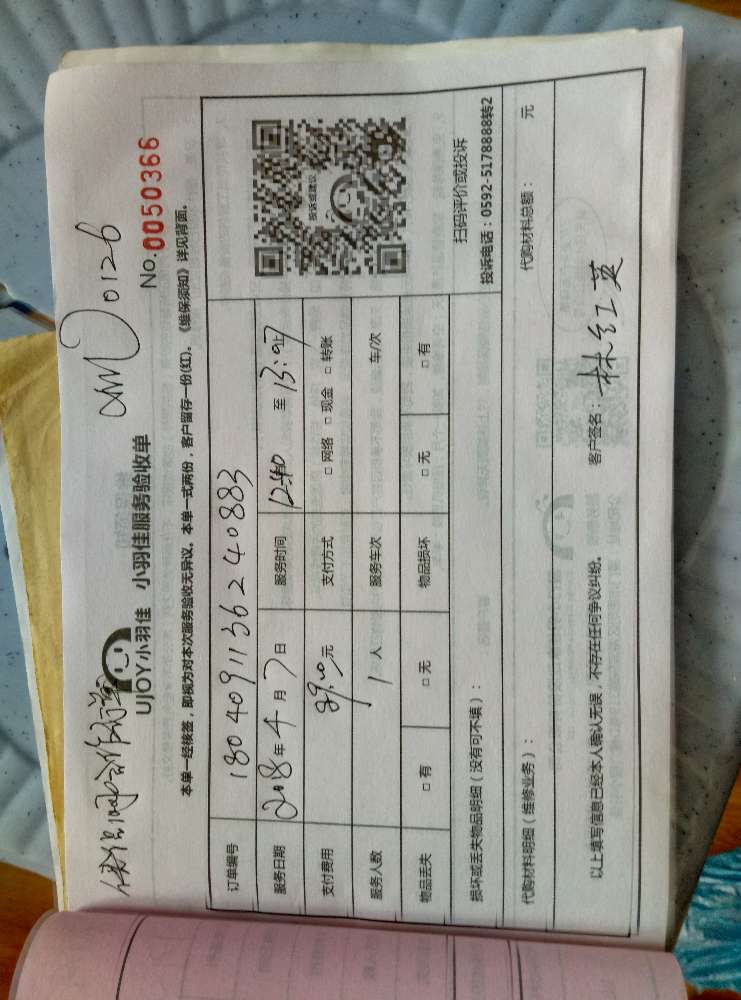 0126
No.0050366
UJOY小羽佳 小羽佳服务验收单
本单一经核签，即视为对本次服务验收无异议。本单一式两份，客户留存一份(红)。《维保须知》详见背面。
订单编号 180409113624 0883
服务日期 2018年4月9日 服务时间 至13:07止
支付费用 89.00元 支付方式 □网络 □现金 □转账
服务人数 1人 服务车次 车/次
物品丢失 □有 □无 物品损坏 □无 □有
投诉或建议
扫码评价或投诉
投诉电话：0592-5178888转2
损坏或丢失物品明细（没有可不填）：
代购材料明细（维修业务）： 代购材料总额： 元
以上填写信息已经本人确认无误，不存在任何争议纠纷。 客户签名：林红英